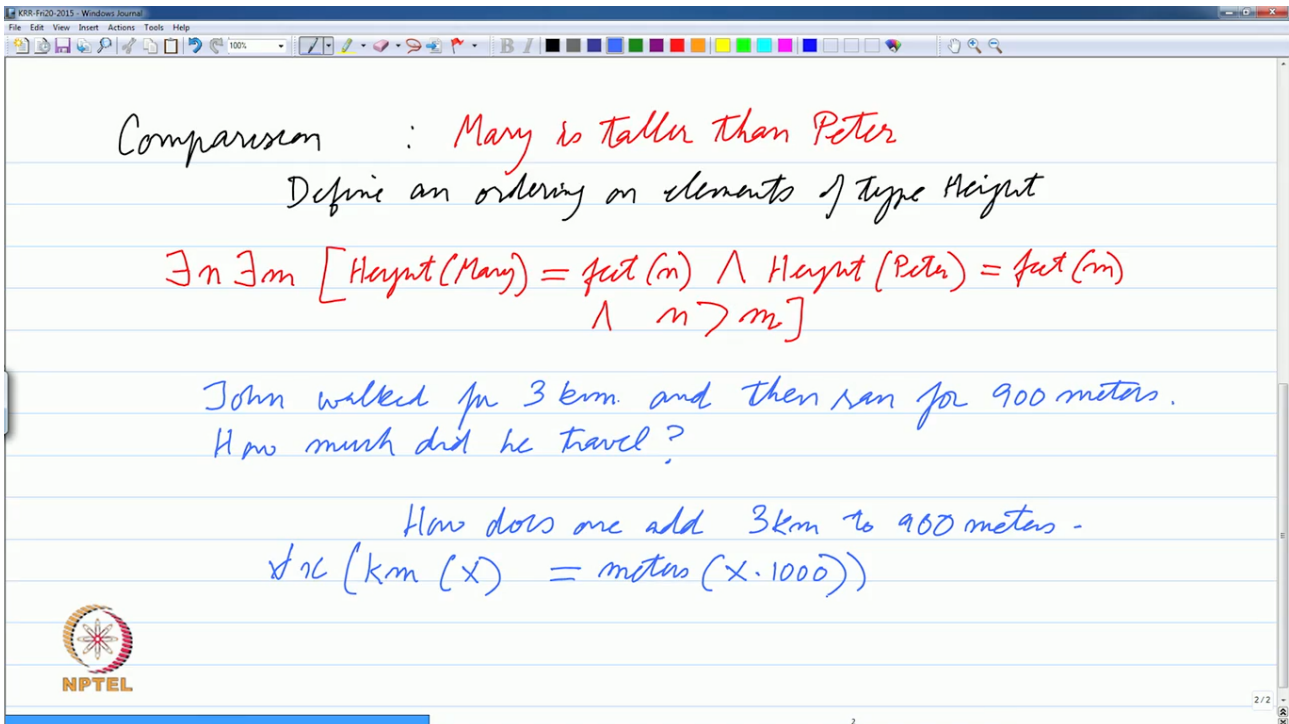 KRR-Fri20-2015 - Windows Journal
File Edit View Insert Actions Tools Help
100%
B I
Comparision : Mary is taller than Peter
Define an ordering on elements of type Height
∃n ∃m [Height(Mary) = feet(n) ∧ Height(Peter) = feet(m)
∧ n > m]
John walked for 3 km. and then ran for 900 meters.
How much did he travel?
How does one add 3km to 900 meters.
∀x (km (X) = meters (X·1000))
NPTEL
2/2
2